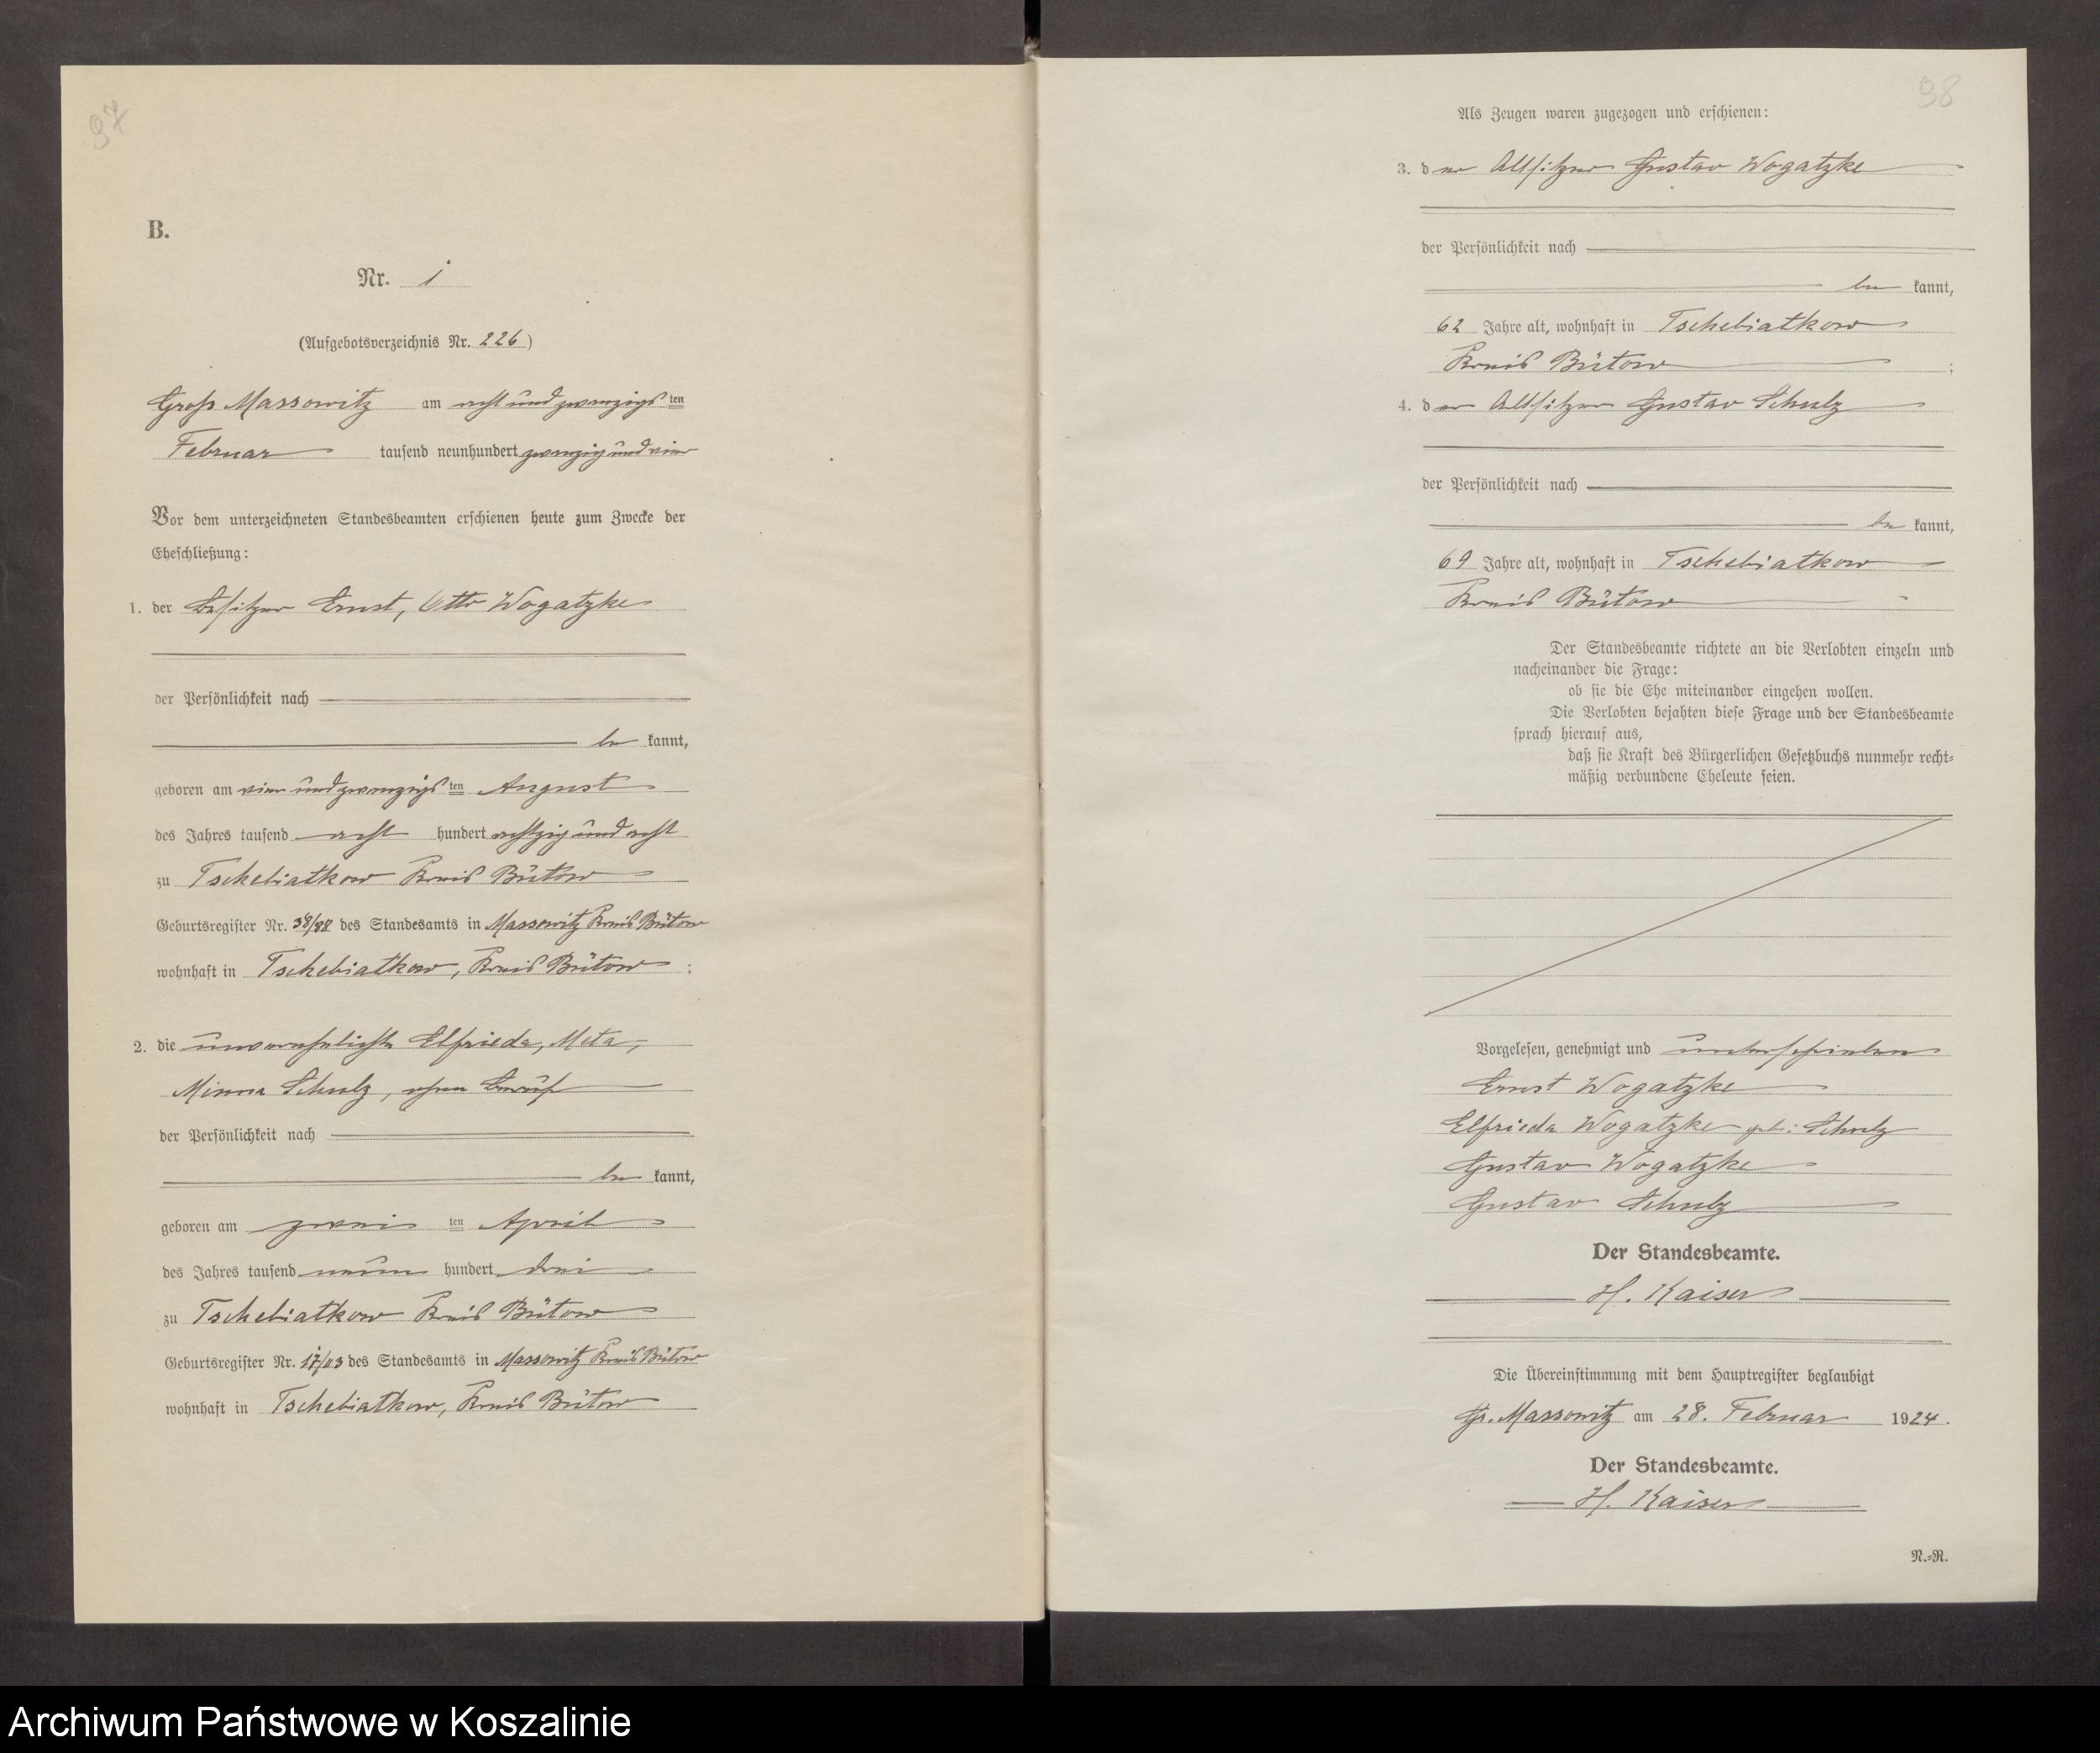 97
B.
Nr. 1
(Aufgebotsverzeichnis Nr. 226)
Groß Massowitz am acht und zwanzigsten
Februar tausend neunhundert zwanzig und vier
Vor dem unterzeichneten Standesbeamten erschienen heute zum Zwecke der
Eheschließung:
1. der Besitzer Ernst, Otto Wogatzke
der Persönlichkeit nach
be kannt,
geboren am vier und zwanzigsten August
des Jahres tausend acht hundert achtzig und acht
zu Tschebiatkow Kreis Bütow
Geburtsregister Nr. 38/88 des Standesamts in Massowitz Kreis Bütow
wohnhaft in Tschebiatkow, Kreis Bütow :
2. die unverehelichte Elfrieda, Meta,
Minna Schulz, ohne Beruf
der Persönlichkeit nach
be kannt,
geboren am zwei ten April
des Jahres tausend neun hundert drei
zu Tschebiatkow Kreis Bütow
Geburtsregister Nr. 17/03 des Standesamts in Massowitz Kreis Bütow
wohnhaft in Tschebiatkow, Kreis Bütow
98
Als Zeugen waren zugezogen und erschienen:
3. der Altsitzer Gustav Wogatzke
der Persönlichkeit nach
be kannt,
62 Jahre alt, wohnhaft in Tschebiatkow
Kreis Bütow ;
4. der Altsitzer Gustav Schulz
der Persönlichkeit nach
be kannt,
69 Jahre alt, wohnhaft in Tschebiatkow
Kreis Bütow
Der Standesbeamte richtete an die Verlobten einzeln und
nacheinander die Frage:
ob sie die Ehe miteinander eingehen wollen.
Die Verlobten bejahten diese Frage und der Standesbeamte
sprach hierauf aus,
daß sie Kraft des Bürgerlichen Gesetzbuchs nunmehr recht-
mäßig verbundene Eheleute seien.
Vorgelesen, genehmigt und unterschrieben
Ernst Wogatzke
Elfrieda Wogatzke geb: Schulz
Gustav Wogatzke
Gustav Schulz
Der Standesbeamte.
H. Kaiser
Die Übereinstimmung mit dem Hauptregister beglaubigt
Gr. Massowitz am 28. Februar 1924.
Der Standesbeamte.
H. Kaiser
N.-R.
Archiwum Państwowe w Koszalinie